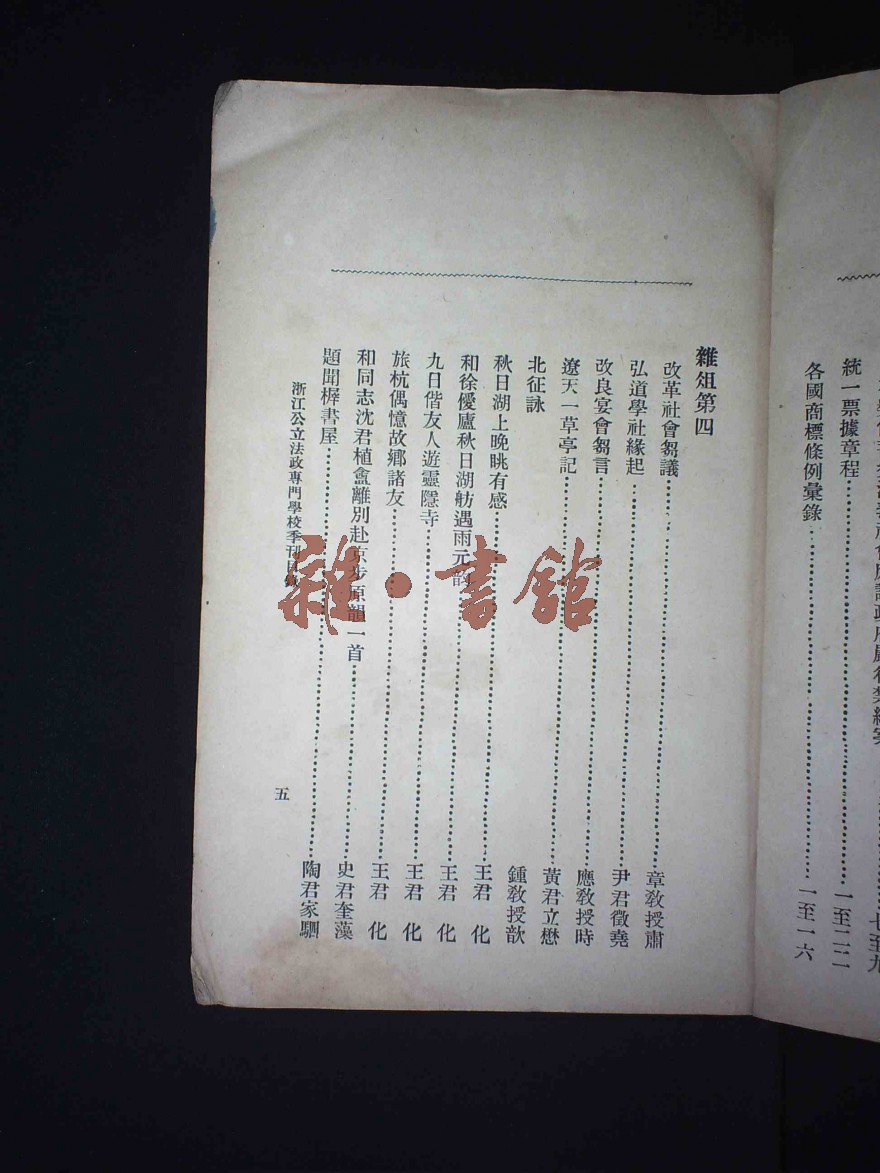 統一票據章程 一至二二
各國商標條例彙錄 一至一六
雜俎第四
改革社會芻議 章教授肅
弘道學社緣起 尹君徵堯
改良宴會芻言 應教授時
遼天一草亭記 黃君立懋
北征詠 鍾教授歆
秋日湖上晚眺有感 王君化
和徐優廬秋日湖舫遇雨元韵 王君化
九日偕友人遊靈隱寺 王君化
旅杭偶憶故鄉諸友 王君化
和同志沈君植盦離別赴京步原韻一首 史君奎藻
題聞樨書屋 陶君家駟
浙江公立法政專門學校季刊目錄 五
雜·書館